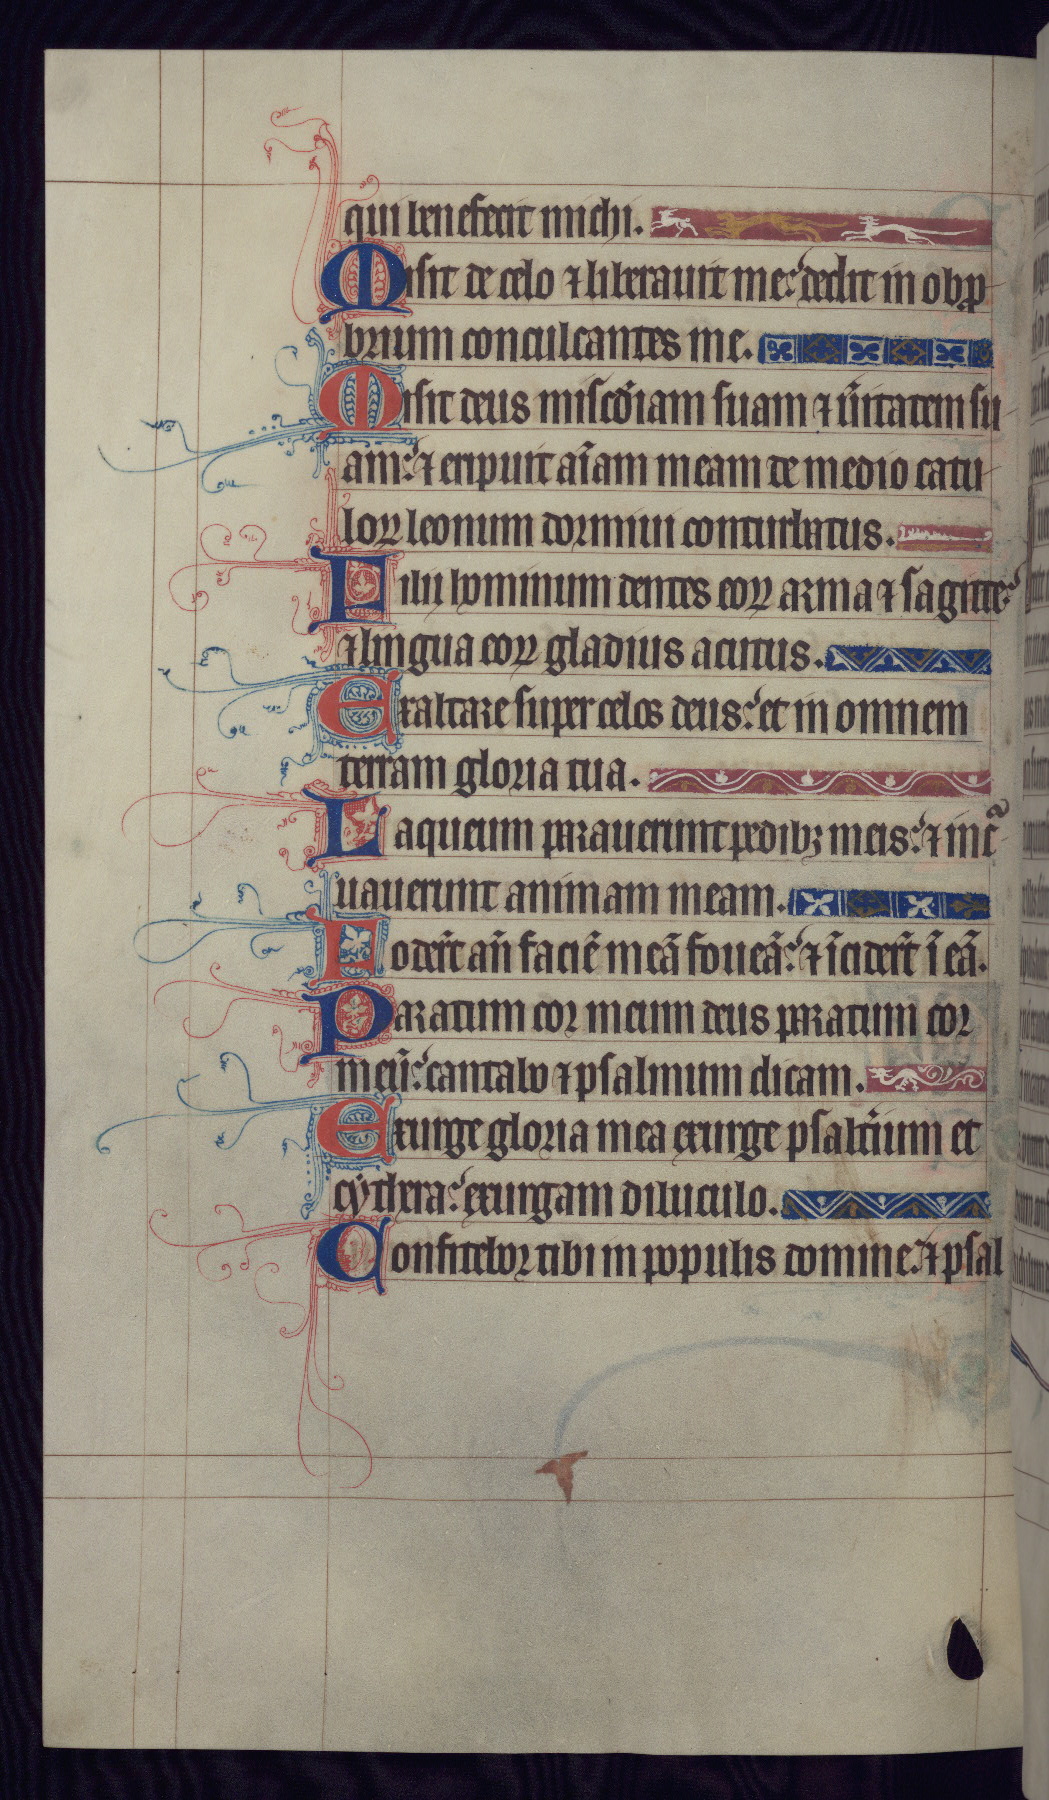 qui benefecit michi.
Misit de celo ⁊ liberauit me: dedit in obp̱-
brium conculcantes me.
Misit deus misc̄diam suam ⁊ ũitatem su-
am: ⁊ eripuit aīam meam de medio catu-
loꝝ leonum dormiui conturbatus.
Filij hominum dentes eoꝝ arma ⁊ sagitte:
⁊ lingua eoꝝ gladius acutus.
Exaltare super celos deus: et in omnem
terram gloria tua.
Laqueum parauerunt pedibꝫ meis: ⁊ inc̃-
uauerunt animam meam.
Foder̄t an̄ faciē meā foueā: ⁊ īcider̄t ī eā.
Paratum cor meum deus paratum cor
meū: cantabo ⁊ psalmum dicam.
Exurge gloria mea exurge psalt̃ium et
cythera: exurgam diluculo.
Confitebor tibi in populis domine: ⁊ psal